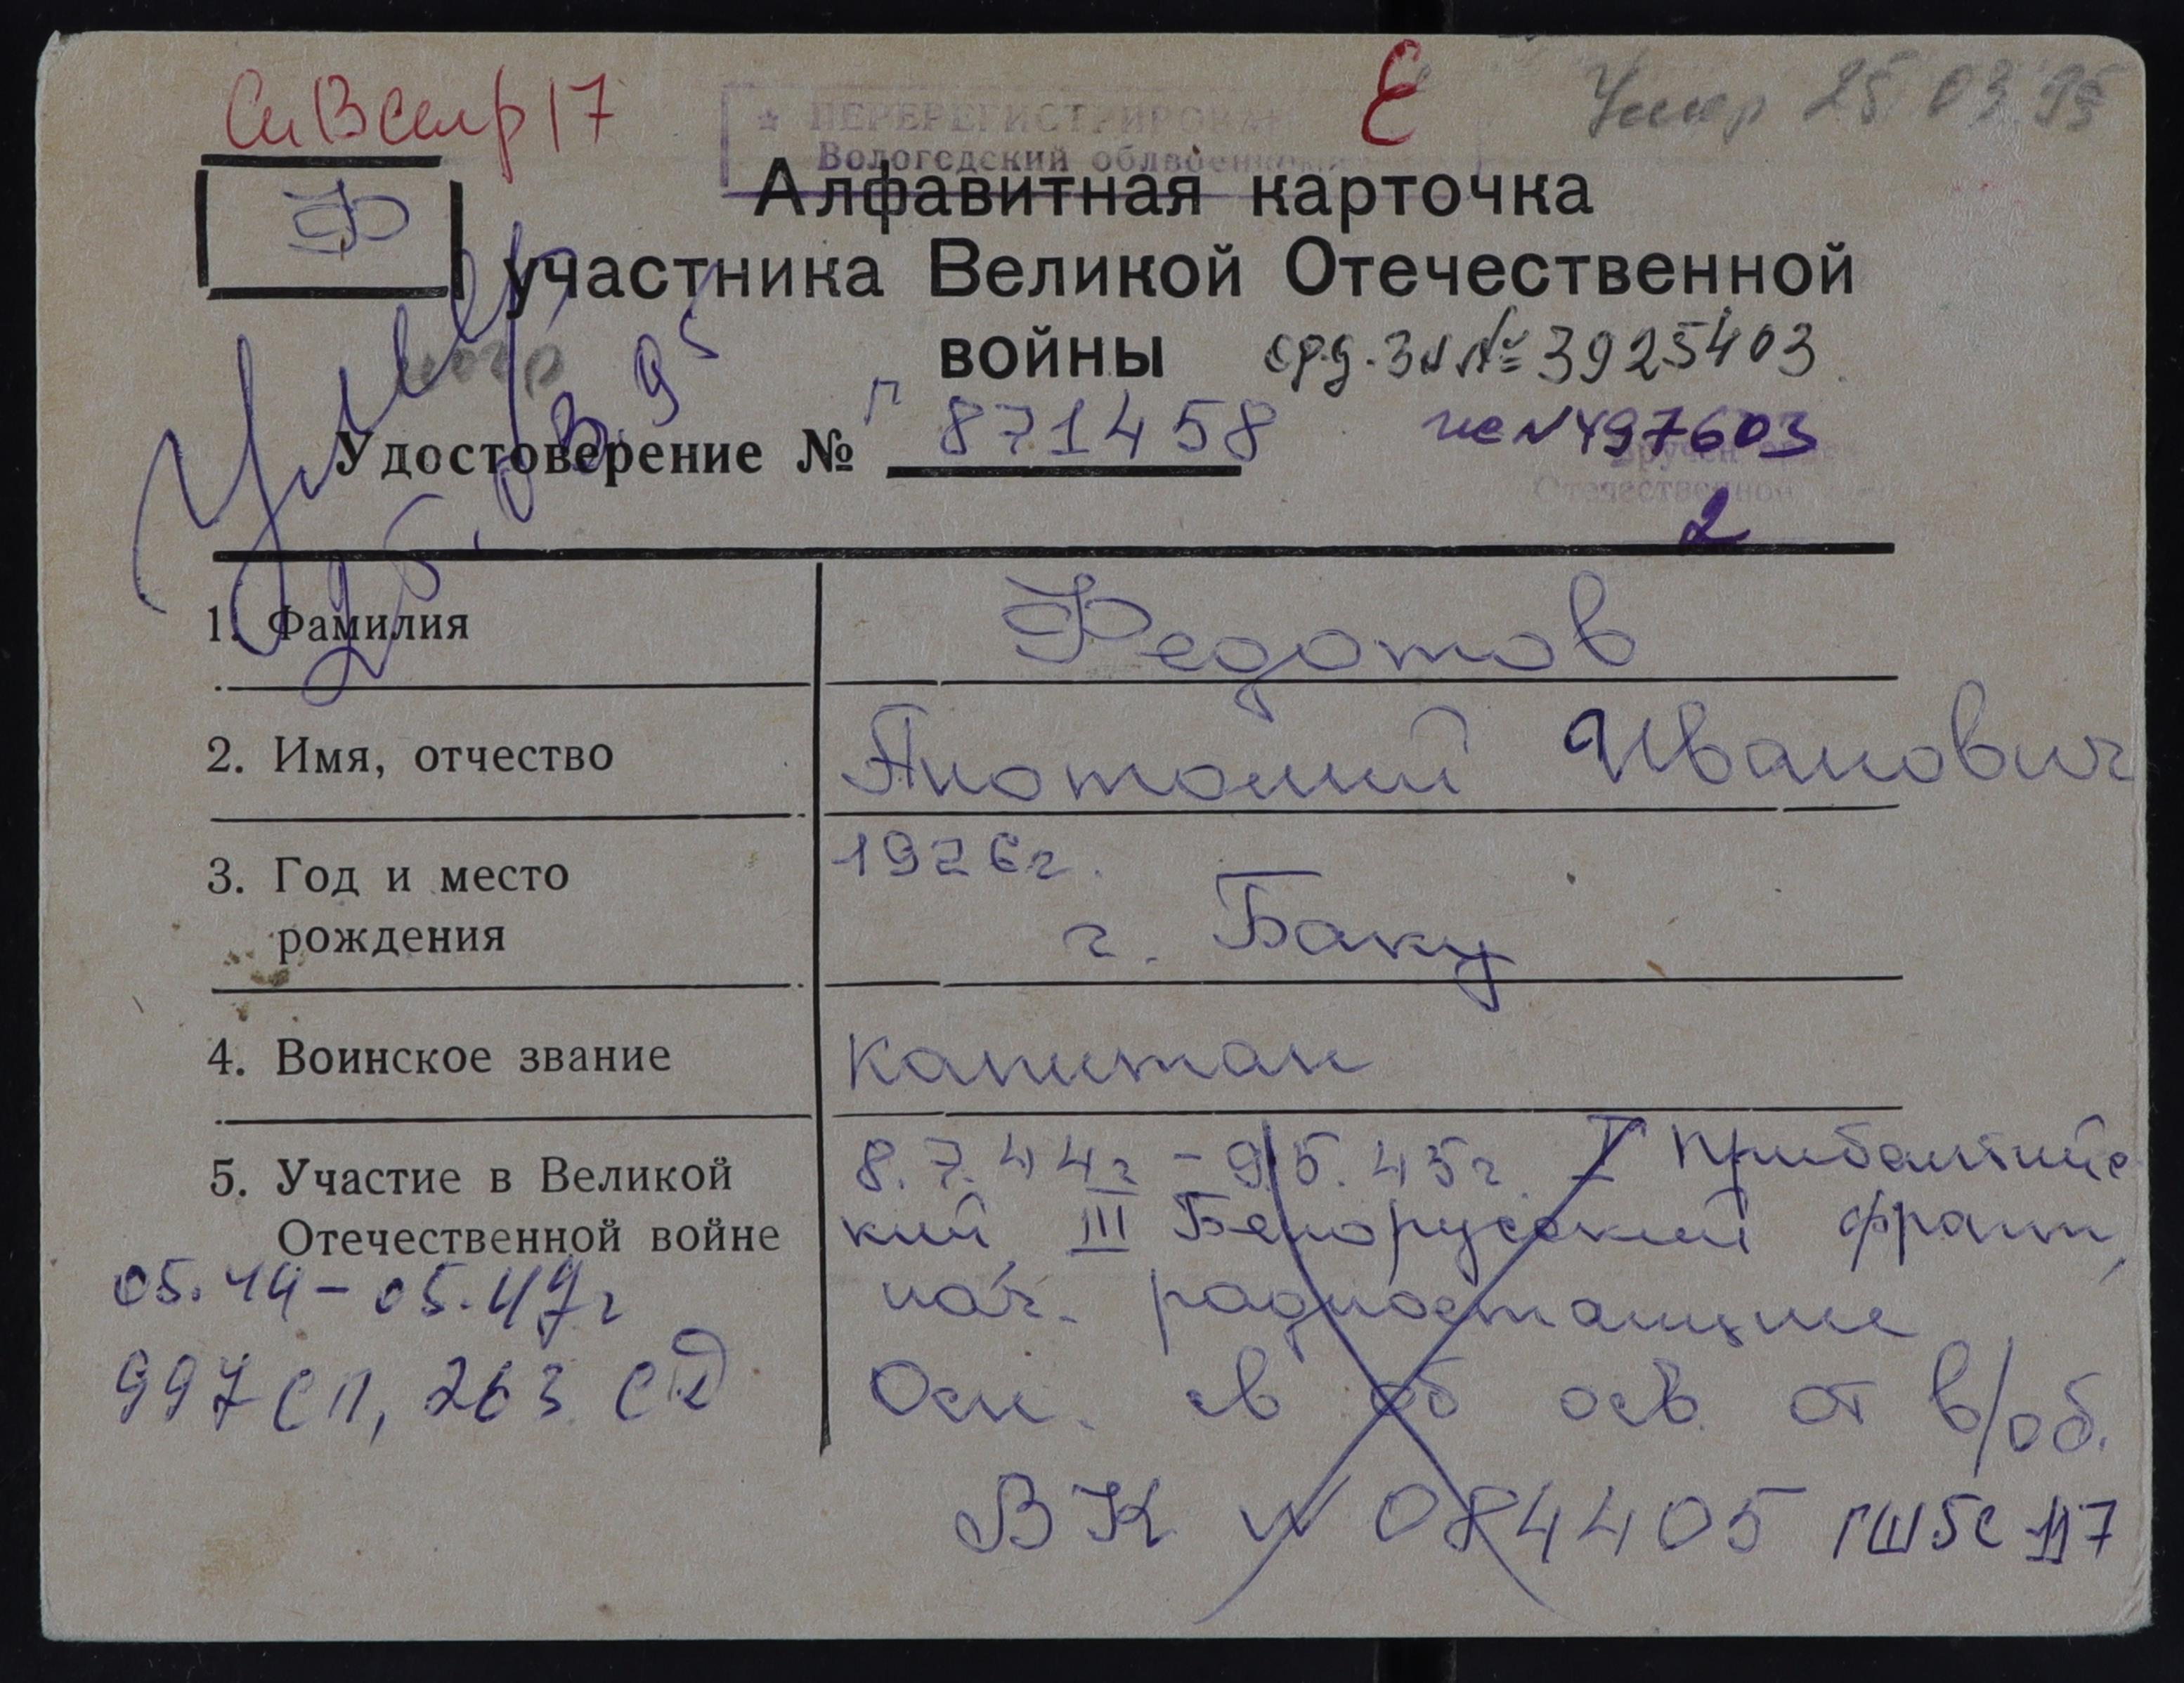 Е
Умер 25.03.95
ПЕРЕРЕГИСТРИРОВАН
Вологодский облвоенком
Ф
Алфавитная карточка
участника Великой Отечественной
войны орд. Зн № 3925403
Умер 25.03.95
Удостоверение № П 871458
не N 497603
Вручен
Отечественной
2
1. Фамилия Федотов
2. Имя, отчество Анатолий Иванович
3. Год и место 1926г.
рождения г. Баку
4. Воинское звание капитан
5. Участие в Великой 8.7.44г - 9.5.45г. I Прибалтийс
Отечественной войне кий, III Белорусский фронт,
05.44 - 05.47г нач. радиостанции
997 СП, 263 СД Осн. св об осв. от в/об.
ВК N 084405 ГШ 5с 117